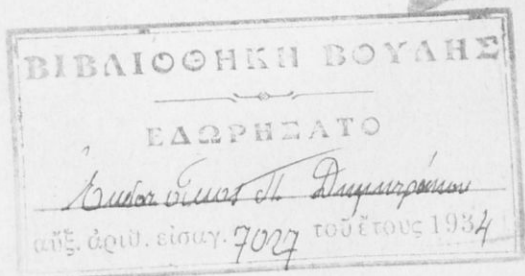 ΒΙΒΛΙΟΘΗΚΗ ΒΟΥΛΗΣ
ΕΔΩΡΗΣΑΤΟ
Ἐκδοτ οἶκος Π Δημητράκου
αὔξ. ἀριθ. εἰσαγ. 7027 τοῦ ἔτους 1934